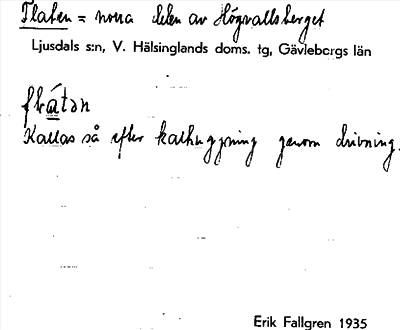 Flaten = norra delen av Högvallsberget
Ljusdals s:n, V. Hälsinglands doms. tg, Gävleborgs län
flátən
Kallas så efter kalhuggning genom drivning.
Erik Fallgren 1935